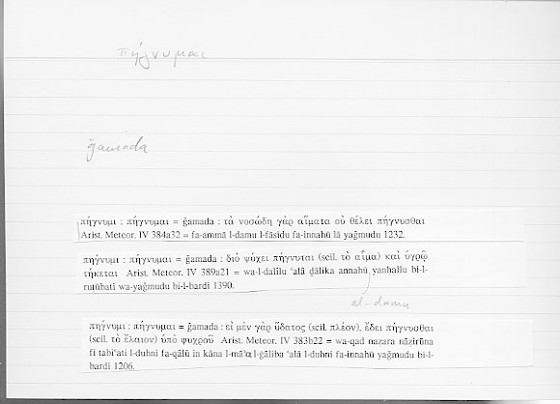 πήγνυμαι
ǧamada
πήγνυμι : πήγνυμαι = ǧamada : τὰ νοσώδη γὰρ αἵματα οὐ θέλει πήγνυσθαι
Arist. Meteor. IV 384a32 = fa-ammā l-damu l-fāsidu fa-innahū lā yaǧmudu 1232.
πήγνυμι : πήγνυμαι = ǧamada : διὸ ψύχει πήγνυται (scil. τὸ αἷμα) καὶ ὑγρῷ
τήκεται Arist. Meteor. IV 389a21 = wa-l-dalīlu ʿalā ḏālika annahū yanḥallu bi-l-
ruṭūbati wa-yaǧmudu bi-l-bardi 1390.
al-damu
πηγνυμι : πήγνυμαι = ǧamada : εἰ μὲν γὰρ ὕδατος (scil. πλέον), ἔδει πήγνυσθαι
(scil. τὸ ἔλαιον) ὑπὸ ψυχροῦ Arist. Meteor. IV 383b22 = wa-qad naẓara nāẓirūna
fī ṭabīʿati l-duhni fa-qālū in kāna l-māʾu l-ġāliba ʿalā l-duhni fa-innahū yaǧmudu bi-l-
bardi 1206.